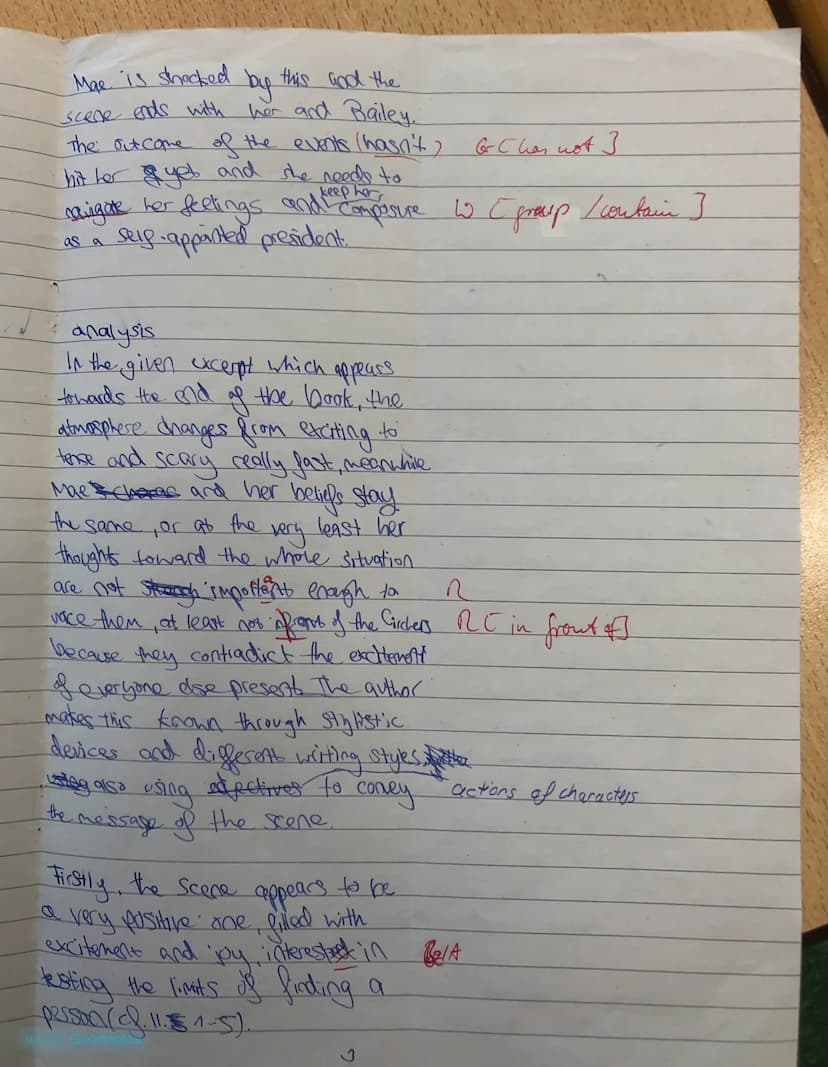 Mae is shocked by this and the
scene ends with her and Bailey.
The outcome of the events (hasn't) G [has not]
hit her yet and she needs to
keep her
navigate her feelings and composure W [grasp / contain]
as a self-appointed president.
analysis
In the given excerpt which appears
towards the end of the book, the
atmosphere changes from exciting to
tense and scary really fast, meanwhile
Mae and her beliefs stay
the same, or at the very least her
thoughts toward the whole situation
are not important enough to R
voice them, at least not infront of the Circlers R [in front of]
because they contradict the excitement
of everyone else present. The author
makes this known through stylistic
devices and different writing styles,
also using adjectives to convey actions of characters
the message of the scene.
Firstly, the scene appears to be
a very positive one, filled with
excitement and joy, interested in /A
testing the limits of finding a
person (cf. ll. 1-5).
3